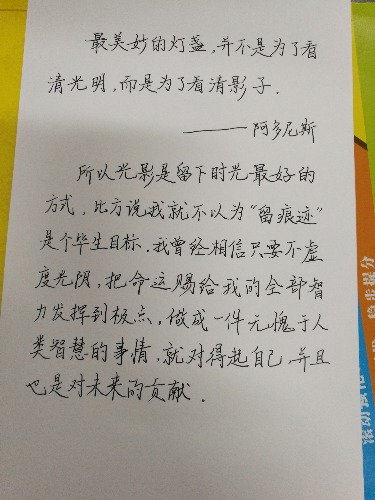 最美妙的灯盏，并不是为了看
清光明，而是为了看清影子．
——阿多尼斯
所以光影是留下时光最好的
方式，比方说我就不以为“留痕迹”
是个毕生目标．我曾经相信只要不虚
度光阴，把命运赐给我的全部智
力发挥到极点，做成一件无愧于人
类智慧的事情，就对得起自己，并且
也是对未来的贡献．
稳步提分